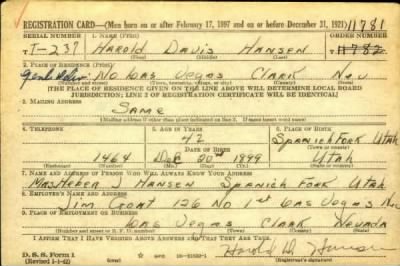 REGISTRATION CARD—(Men born on or after February 17, 1897 and on or before December 31, 1921) 11781
SERIAL NUMBER 1. NAME (Print) ORDER NUMBER
T-237 Harold Davis Hansen 11782
(First) (Middle) (Last)
2. PLACE OF RESIDENCE (Print)
No Las Vegas Clark Nev
(Number and street) (Town, township, village, or city) (County) (State)
[THE PLACE OF RESIDENCE GIVEN ON THE LINE ABOVE WILL DETERMINE LOCAL BOARD
JURISDICTION; LINE 2 OF REGISTRATION CERTIFICATE WILL BE IDENTICAL]
3. MAILING ADDRESS
Same
[Mailing address if other than place indicated on line 2. If same insert word same]
4. TELEPHONE 5. AGE IN YEARS 6. PLACE OF BIRTH
42 Spanish Fork Utah
DATE OF BIRTH (Town or county)
1464 Dec 20th 1899 Utah
(Exchange) (Number) (Mo.) (Day) (Yr.) (State or country)
7. NAME AND ADDRESS OF PERSON WHO WILL ALWAYS KNOW YOUR ADDRESS
Mrs Heber Hansen Spanish Fork Utah
8. EMPLOYER'S NAME AND ADDRESS
Jim 126 No 1st Las Vegas Nev
9. PLACE OF EMPLOYMENT OR BUSINESS
Las Vegas Clark Nevada
(Number and street or R. F. D. number) (Town) (County) (State)
I AFFIRM THAT I HAVE VERIFIED ABOVE ANSWERS AND THAT THEY ARE TRUE.
D. S. S. Form 1 Harold D. Hansen
(Revised 1-1-42) (over) 16-21630-1 (Registrant's signature)